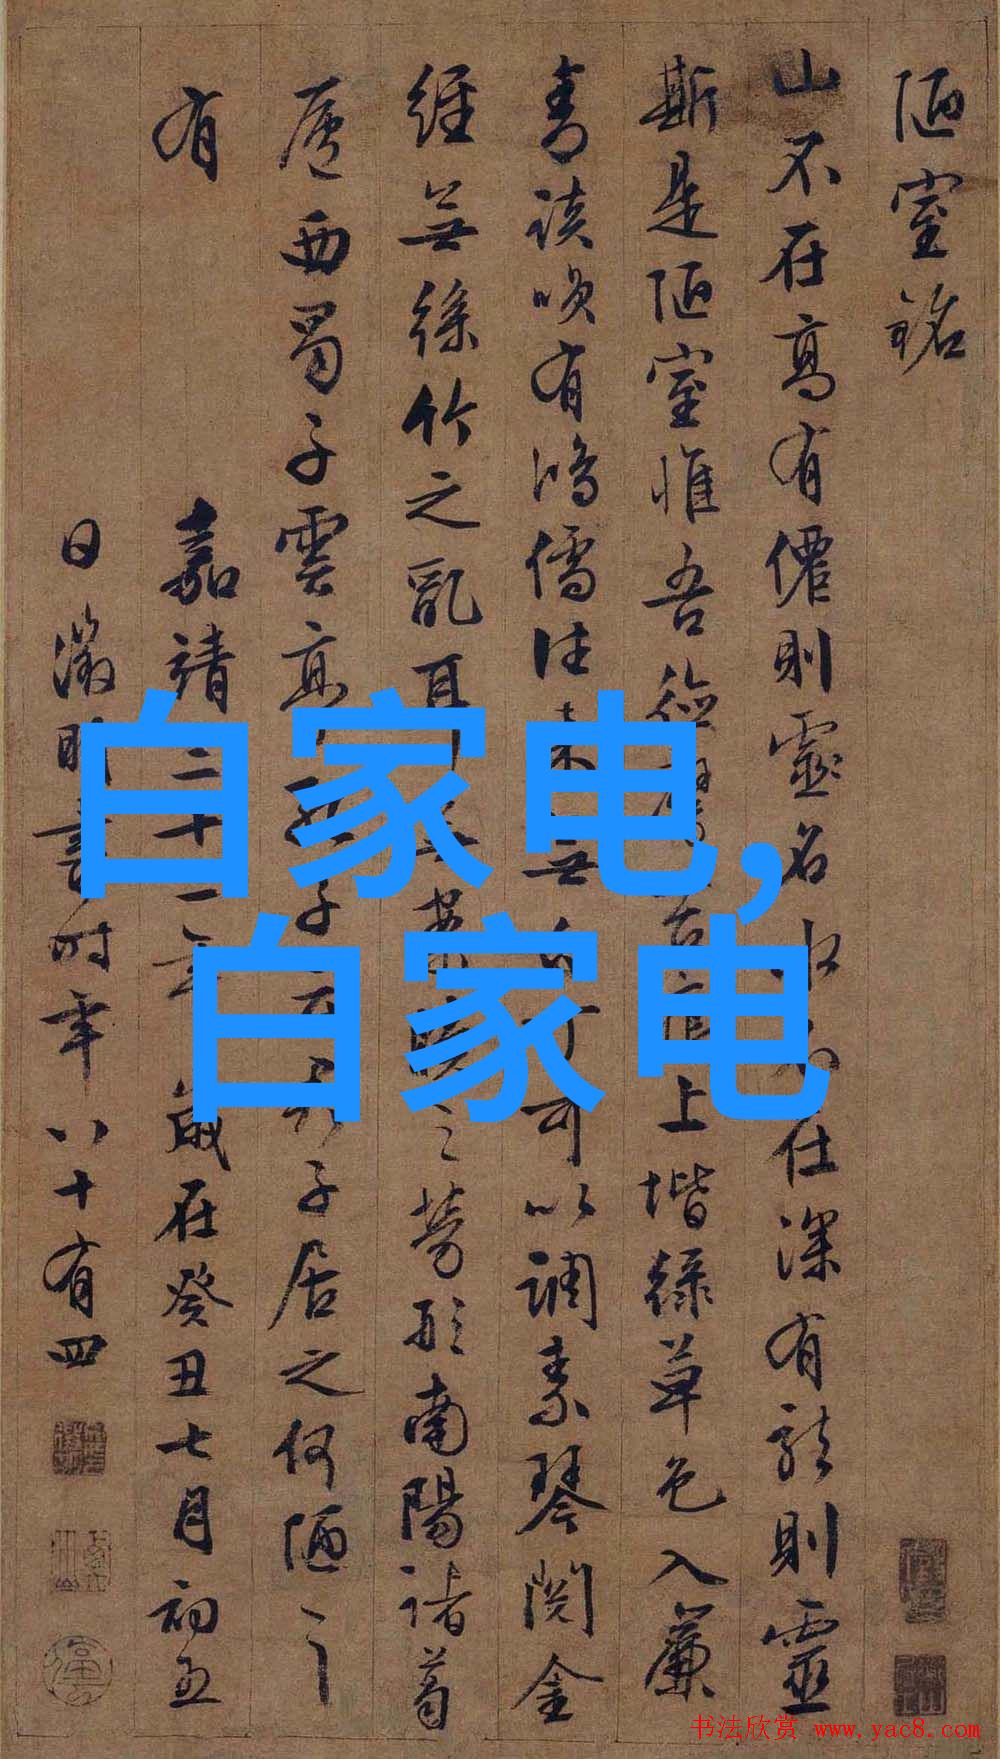 陋室銘
山不在高有僊則靈名水不在深有龍則靈
斯是陋室惟吾德馨苔痕上堦綠草色入簾
青談唉有鴻儒往來無白丁可以調素琴閱金
經無絲竹之亂耳無案牘之勞形南陽諸葛
廬西蜀子雲亭孔子云君子居之何陋之
有
嘉靖三十二年歲在癸丑七月初五
日徵明書時年八十有四
白家电,
白家电
书法欣赏 www.yac8.com